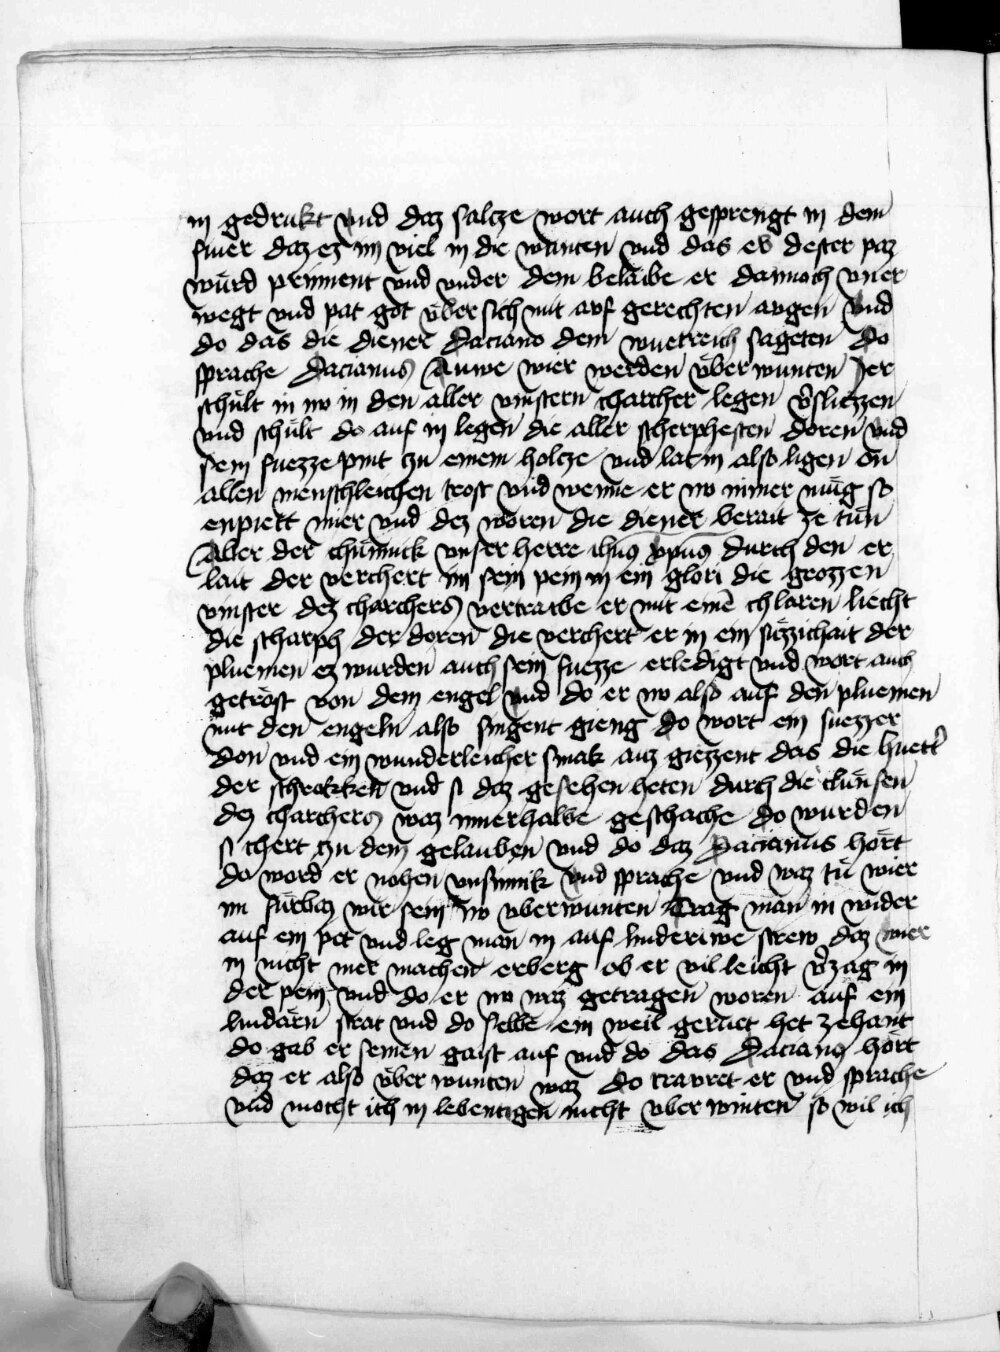 in gedrukt vnd daz saltze wort auch gesprengt in dem
fiuer daz ez im viel in die wunten vnd das er dester paz
wúrd prinnent vnd vnder dem belaibe er dannoch vner
wegt vnd pat got vber sich mit auf gerechten augen vnd
do das die diener Daciano dem wuetreich sageten Do
sprache Dacianus Auwe wier werden vber wunten Jer
schult in no in den aller vinstern charcher legen v̉sliezzen
vnd schult do auf in legen die aller scherphesten doren vnd
sein fuezze pint zu einem holtze vnd lat in also ligen on
allen menschleichen trost vnd wenne er no nimer mug so
enpiett mier vnd dez woren die diener berait ze tun
Aber der chunnick vnser herre ihus xpus durch den er
lait der verchert im sein pein in ein glori die grozzen
vinster dez charchers vertraibe er mit einē chlaren liecht
die scharph der doren die verchert er in ein suezzichait der
pluemen ez wurden auch sein fuezze erledigt vnd wort auch
getrost von dem engel vnd do er no also auf den pluemen
mit den engeln also singent gieng do wort ein suezzer
don vnd ein wunderleicher smak auz giezzent das die huett̉
der schrokken vnd si daz gesehen heten durch die clunsen
dez charchers waz innerhalbe geschache do wurden
si chert zu dem gelauben vnd do daz Dacianus hort
do word er nohen vnsinnik vnd sprache vnd waz tu wier
im furbaz wir sein no vberwunten Trag man in wider
auf ein pet vnd leg man in auf linderiwe strew daz wier
in nicht mer machen erberg ob er vil leicht v̉zag in
der pein vnd do er no waz getragen woren auf ein
lindarn strat vnd do selbe ein weil geruet het zehant
do gab er seinen gaist auf vnd do das Daciano hort
daz er also vber wunten waz do travret er vnd sprache
vnd mocht ich in lebentigen nicht vber winten so wil ich